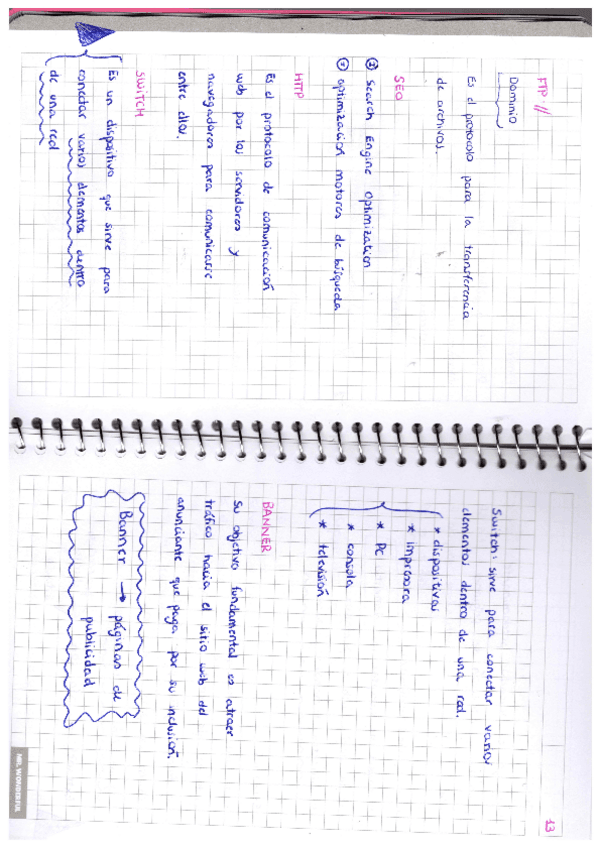 FTP://
Dominio
Es el protocolo para la transferencia
de archivos.
SEO
① Search Engine Optimization
② optimización motores de búsqueda
HTTP
Es el protocolo de comunicación
web por los servidores y
navegadores para comunicarse
entre ellos.
SWITCH
Es un dispositivo que sirve para
conectar varios elementos dentro
de una red
13
Switch: sirve para conectar varios
elementos dentro de una red.
* dispositivos
* impresora
* PC
* consola
* televisión
BANNER
Su objetivo fundamental es atraer
tráfico hacia el sitio web del
anunciante que paga por su inclusión.
Banner → páginas de
publicidad
MR. WONDERFUL